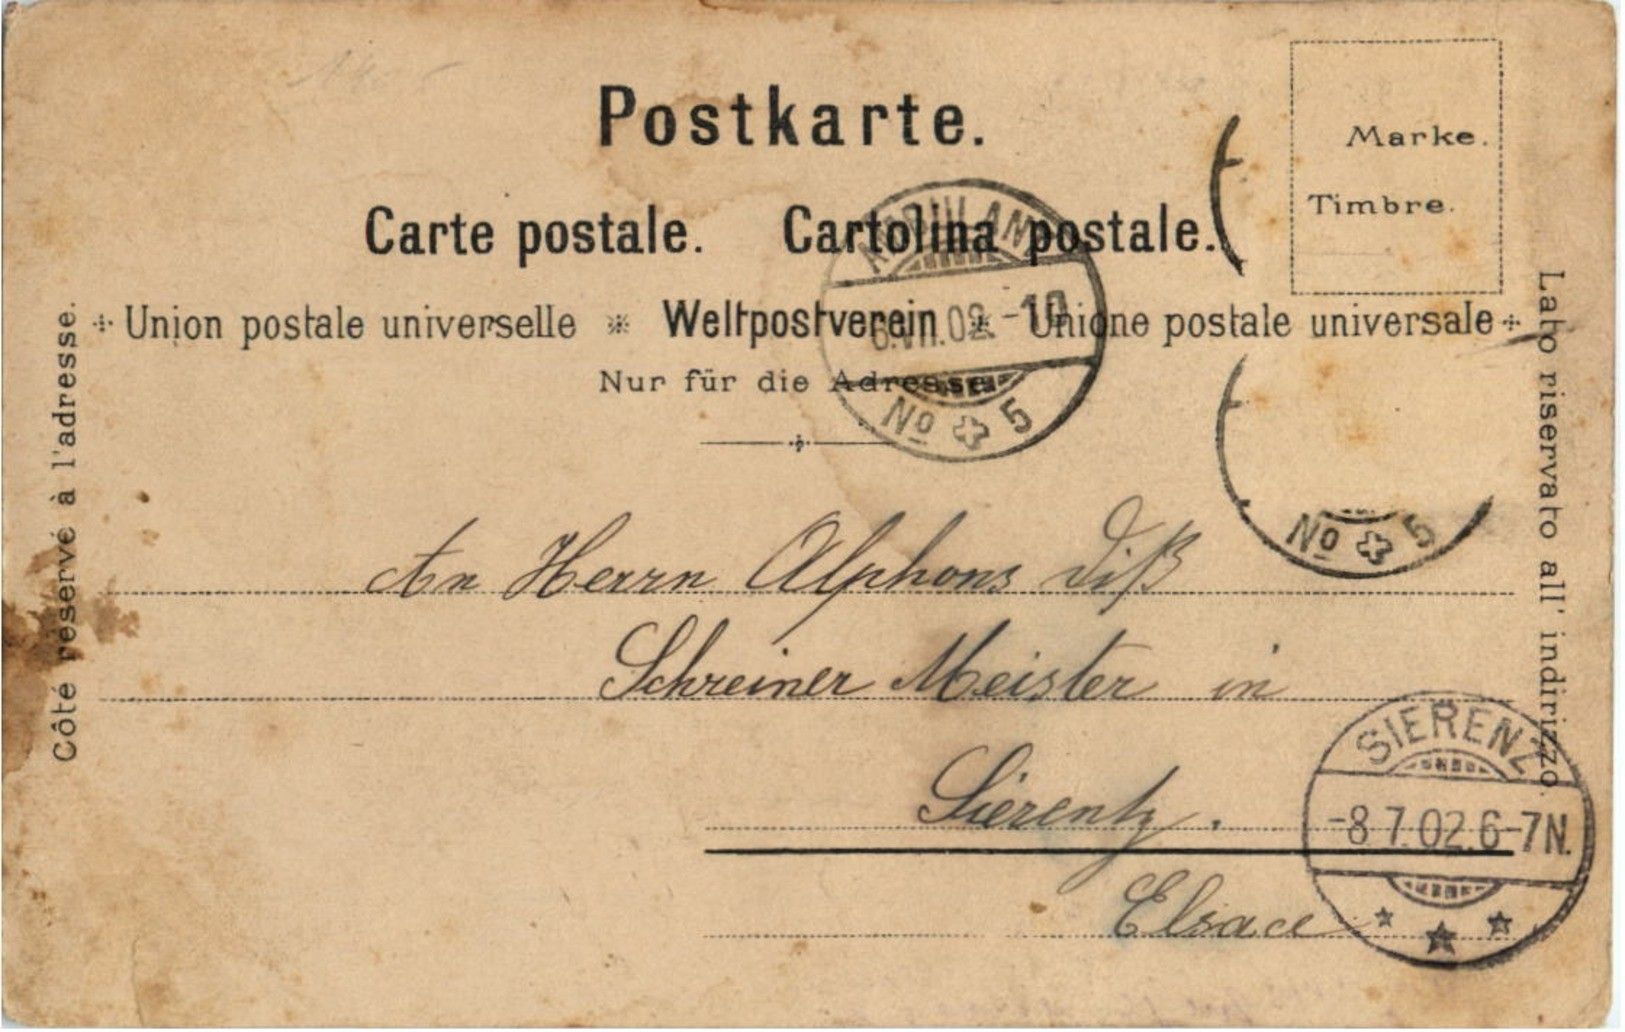 Postkarte.
Marke.
Timbre.
Carte postale. Cartolina postale.
Union postale universelle Weltpostverein Unione postale universale
Nur für die Adresse
Côté réservé à l'adresse.
Lato riservato all' indirizzo.
AMBULANT
6.VII.02.-10
No 5
No 5
An Herrn Alphons Diß
Schreiner Meister in
Sierentz.
Elsace
SIERENZ
-8.7.02.6-7N.